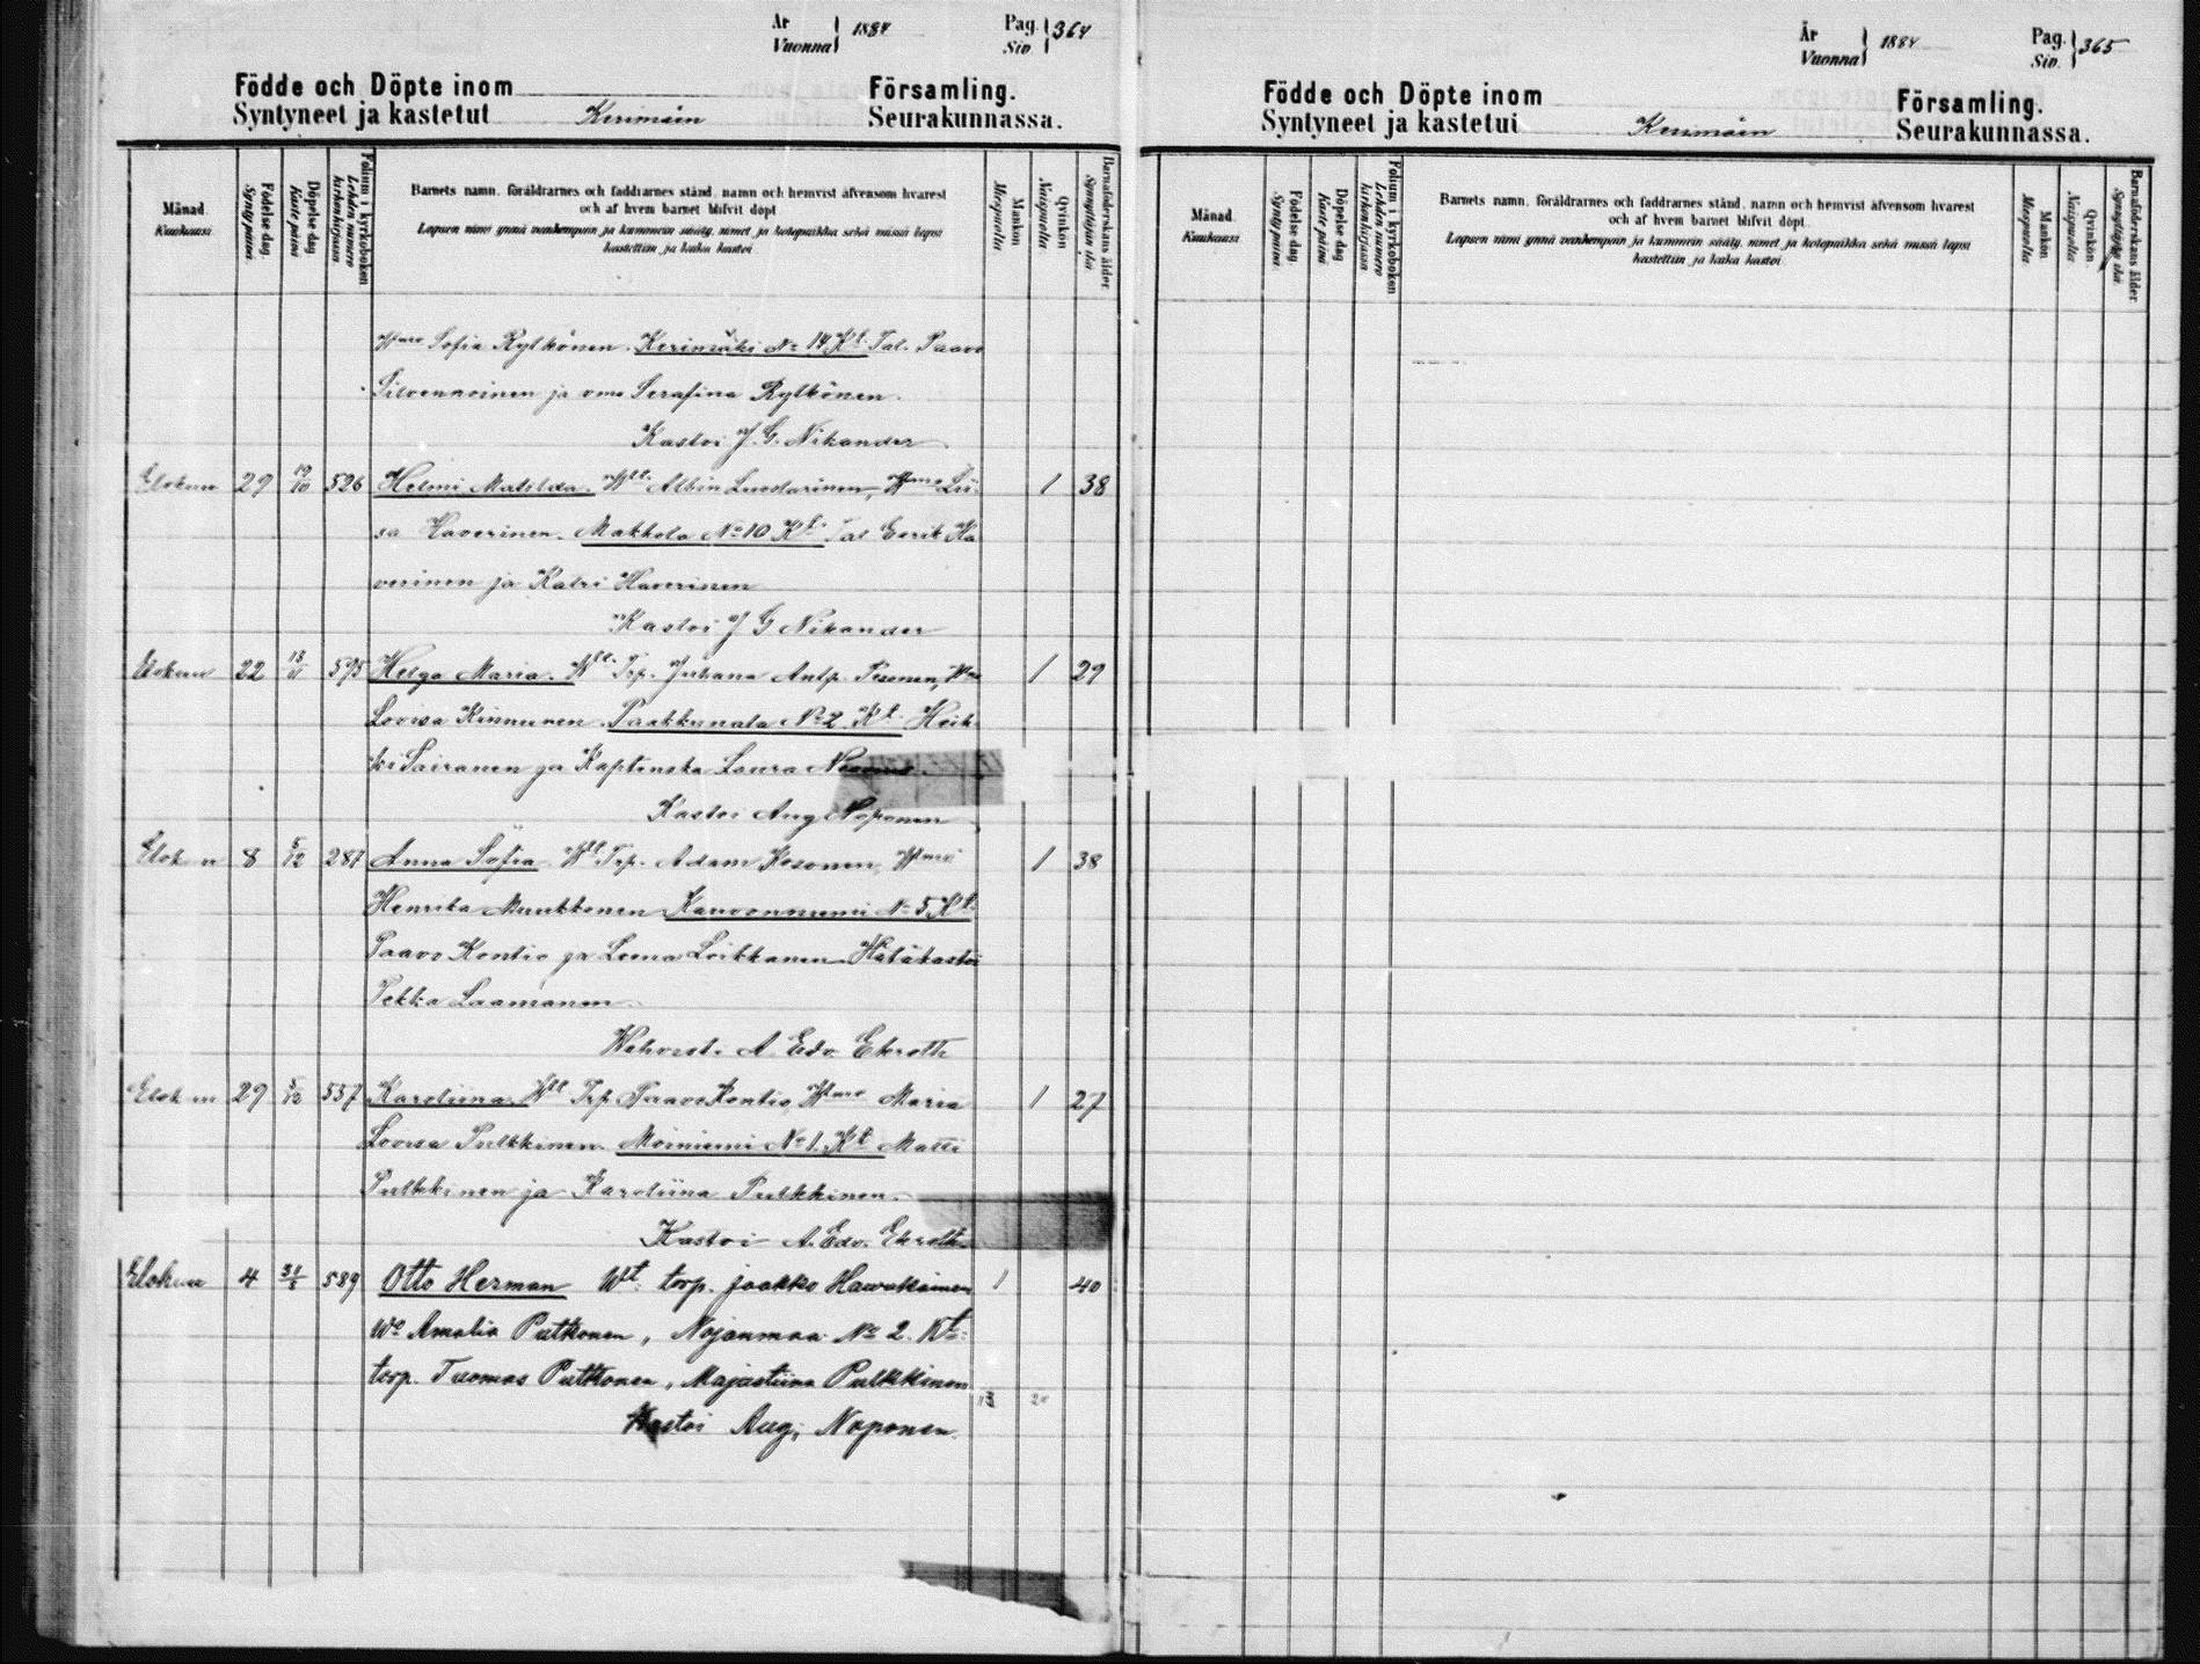 År
Vuonna 1884 Pag. Siv 364
Födde och Döpte inom Församling.
Syntyneet ja kastetut Kerimäen Seurakunnassa.
Månad. Kuukausi
Födelse dag. Synty päivä.
Döpelse dag Kaste päivä
Folium i kyrkoboken Lehden numero kirkonkirjassa
Barnets namn, föräldrarnes och faddrarnes stånd, namn och hemvist äfvensom hvarest
och af hvem barnet blifvit döpt
Lapsen nimi ynnä vanhempain ja kummein sääty, nimet ja kotopaikka sekä missä lapsi
kastettiin ja kuka kastoi
Mankön Miespuolta.
Qvinkön Naispuolta.
Barnaföderskans ålder Synnyttäjän ikä
Wmo Sofia Rytkönen. Kerimäki No 14 Kt. Tal. Paavo
Silvennoinen ja vmo Serafina Rytkönen.
Kastoi J. G. Nikander
Elokuu 29 19/10 526 Helmi Matilda. Wtt. Albin Luostarinen, Wmo Lii-
sa Haverinen. Makkola No 10 Kt. Tal Eerik Ha
verinen ja Katri Haverinen
Kastoi J G Nikander
Elokuu 22 595 Helga Maria. Wtt. Trp. Juhana Antp. Pesonen, Wmo
Lovisa Kinnunen. Paakkunala No 2. Kt. Heik-
ki Sairanen ja Kaptenska Laura
Kastoi Aug Noponen
Elok u 8 287 Anna Sofia Wtt. Trp. Adam Kosonen, Wmo
Henrika Muukkonen No 5 Kt.
Paavo Kontio ja Leena Loikkanen Hätäkastoi
Pekka Laamanen
Wahvist. A Edv. Ekroth
Elok uu 29 5/12 537 Karoliina. Wtt Trp. Paavo Kontio, Wmo Maria
Lovisa Pulkkinen. Moinniemi No 1. Kt Matti
Pulkkinen ja Karoliina Pulkkinen.
Kastoi A. Edv. Ekroth.
Elokuu 4 31/8 589 Otto Herman Wt: torp. jaakko Hawukainen 1 40
Wo Amalia Putkonen, Nojanmaa No 2. Kt:
torp. Tuomas Putkonen, Majastiina Pulkkinen
13
Kastoi Aug; Noponen.
1 38
1 29
1 38
1 27
År
Vuonna 1884 Pag. Siv. 365
Födde och Döpte inom Församling.
Syntyneet ja kastetut Kerimäen Seurakunnassa.
Månad. Kuukausi
Födelse dag. Synty päivä.
Döpelse dag Kaste päivä
Folium i kyrkoboken Lehden numero kirkonkirjassa
Barnets namn, föräldrarnes och faddrarnes stånd, namn och hemvist äfvensom hvarest
och af hvem barnet blifvit döpt.
Lapsen nimi ynnä vanhempain ja kummein sääty, nimet ja kotopaikka sekä missä lapsi
kastettiin ja kuka kastoi
Mankön Miespuolta.
Qvinkön. Naispuolta
Barnaföderskans ålder Synnyttäjän ikä